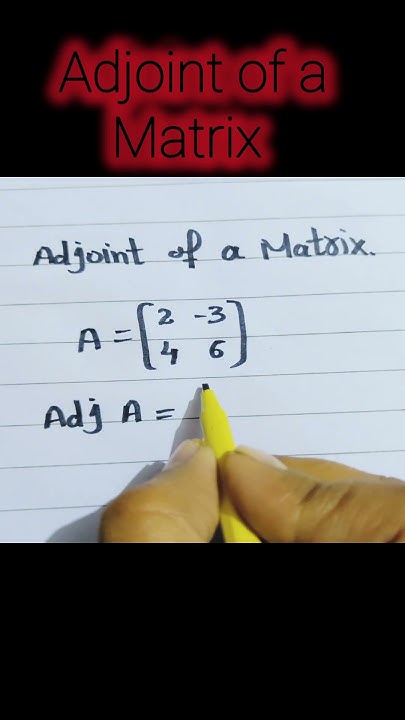 Adjoint of a
Matrix
Adjoint of a Matrix.
A = [2 -3
4 6]
Adj A =